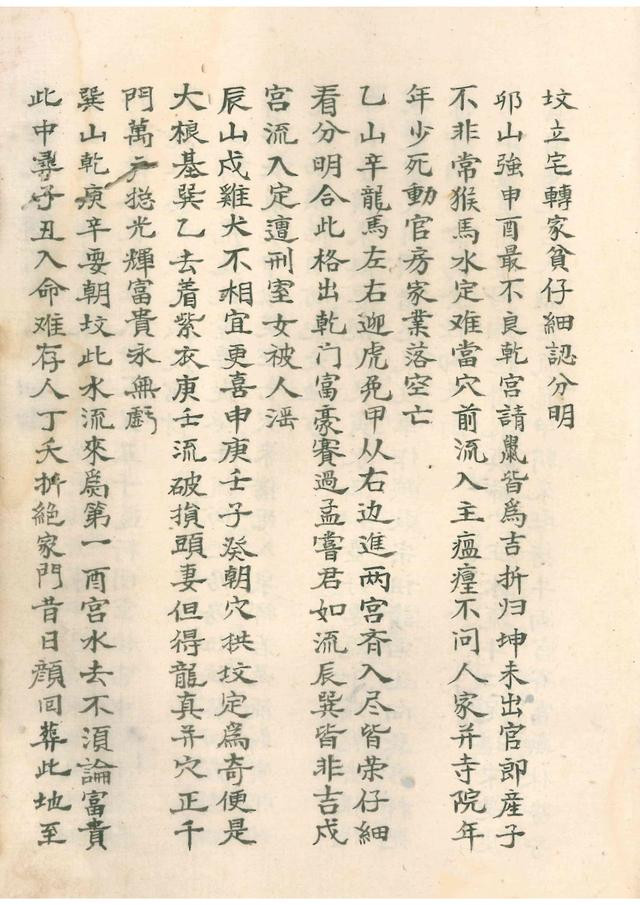 坟立宅轉家貧仔細認分明
卯山強申酉最不良乾宮請鼠皆爲吉折归坤未出官即産子
不非常猴馬水定难當穴前流入主瘟𤺥不问人家并寺院年
年少死動官房家業落空亡
乙山辛龍馬左右迎虎兔甲从右边進两宮斉入尽皆荣仔細
看分明合此格出乾门富豪賽過孟嘗君如流辰巽皆非吉戌
宮流入定遭刑室女被人滛
辰山戌雞犬不相宜更喜申庚壬子癸朝穴拱坟定爲奇便是
大根基巽乙去着紫衣庚壬流破損頭妻但得龍真并穴正千
門萬户捴光輝富貴永無虧
巽山乾庚辛要朝坟此水流來爲第一酉宮水去不須論富貴
此中尋子丑入命难存人丁夭折絕家門昔日顔回葬此地至